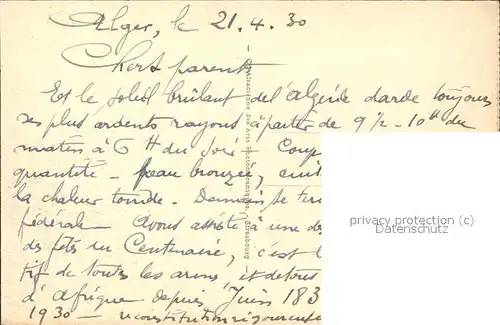 Alger, le 21.4.30
Chers parents
Et le soleil brûlant de l'Algérie darde toujours
ses plus ardents rayons à partir de 9 1/2 - 10 H du
matin à 6 H du soir - Coup
quantité - peau bronzée,
la chaleur torride - Demain se ter
fédérale - Avons assisté à une des
des fêtes du Centenaire, c'est l
tif de toutes les armes et de tous
d'Afrique depuis Juin 183
1930 - reconstitution rigoureuse
privacy protection (c)
akpool.de